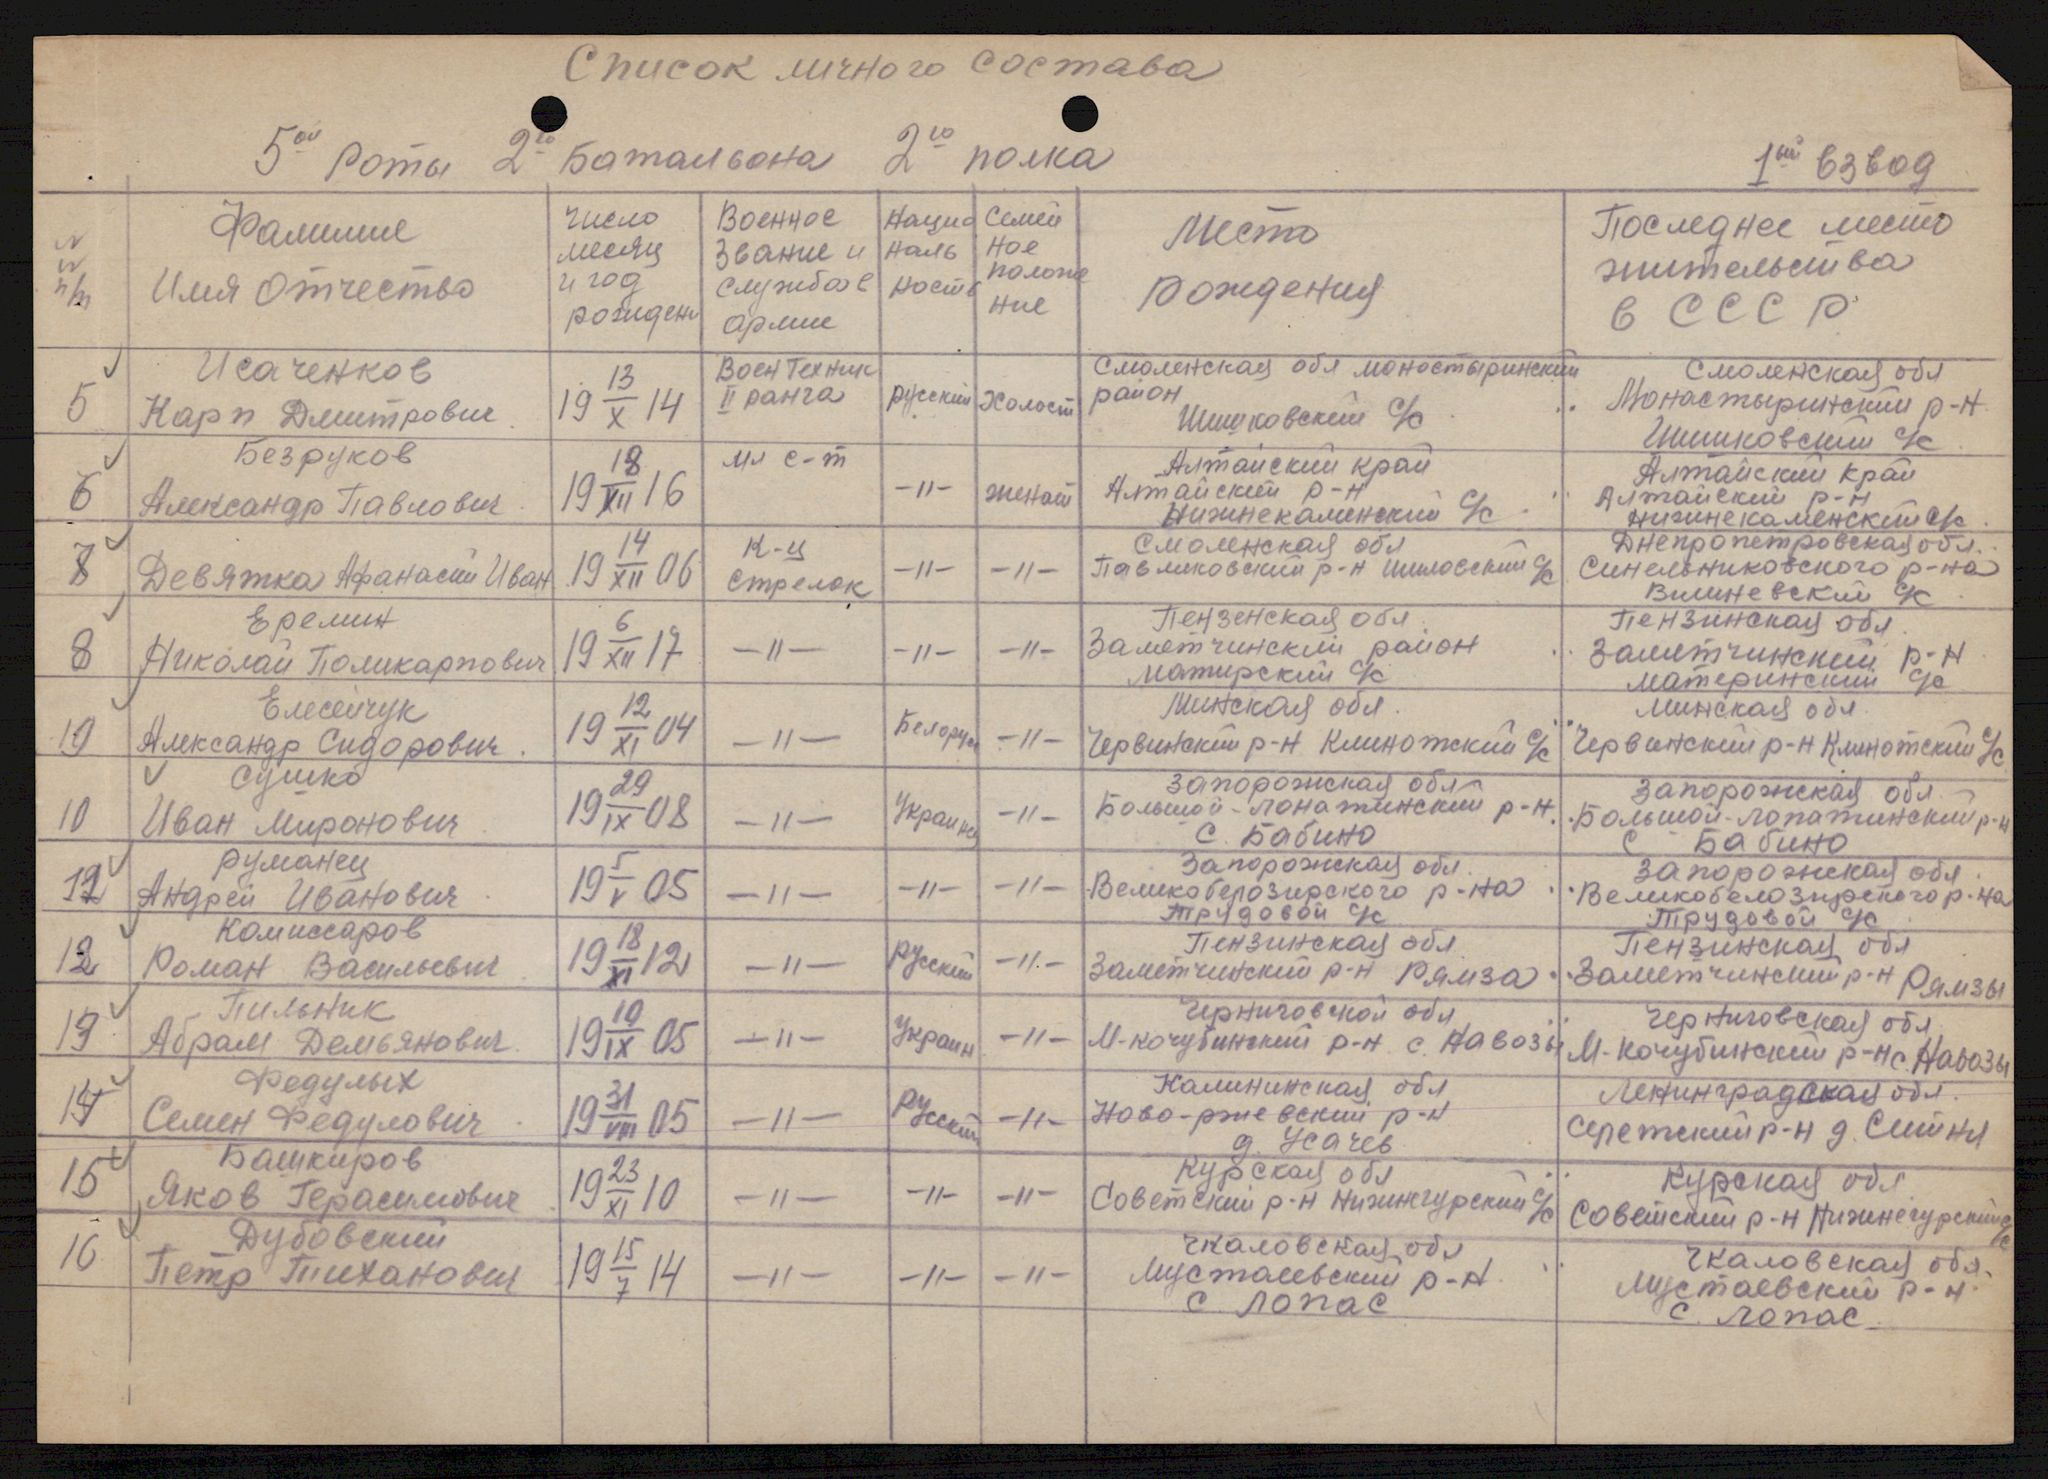 Список личного состава
5ой роты 2го Батальона 2го полка
1ый взвод
№№ п/п
Фамилие
Имя Отчество
Число
месяц
и год
рожден
Военное
звание и
служба в
армии
Нацио
наль
ность
Семей
ное
положе
ние
Место
рождения
Последнее место
жительства
в СССР
5
Исаченков
Карп Дмитрович
19 13/X 14
ВоенТехник
II ранга
русский
Холост
Смоленская обл моностыринский
район
Шишковский с/с
Смоленская обл
Монастыринский р-н
Шишковский с/с
6
Безруков
Александр Павлович
19 18/XII 16
мл с-т
-"-
женат
Алтайский край
Алтайский р-н
Нижнекаменский с/с
Алтайский край
Алтайский р-н
Нижнекаменский с/с
7
Девятка Афанасий Иван
19 14/XII 06
К-ц
стрелок
-"-
-"-
Смоленская обл
Павликовский р-н Шиловский с/с
Днепропетровская обл.
Синельниковского р-на
Вишневский с/с
8
Еремин
Николай Поликарпович
19 6/XII 17
-"-
-"-
-"-
Пензенская обл
Заметчинский район
матирский с/с
Пензинская обл
Заметчинский р-н
материнский с/с
10
Елесейчук
Александр Сидорович
19 12/XI 04
-"-
Белорус
-"-
Минская обл.
Червинский р-н Клинотский с/с
Минская обл
Червинский р-н Клинотский с/с
10
Сушко
Иван Миронович
19 29/IX 08
-"-
Украинец
-"-
Запорожская обл
Большой-лопатинский р-н.
с. Бабино
Запорожская обл.
Большой-лопатинский р-н
с Бабино
12
Руманец
Андрей Иванович
19 5/V 05
-"-
-"-
-"-
Запорожская обл.
Великобелозирского р-на
трудовой с/с
Запорожская обл
Великобелозирского р-на
трудовой с/с
12
Комиссаров
Роман Васильевич
19 18/XI 12
-"-
русский
-"-
Пензинская обл
Заметчинский р-н Рямза
Пензинская обл
Заметчинский р-н Рямзы
13
Пильник
Абрам Демьянович
19 10/IX 05
-"-
Украин
-"-
Черниговской обл
М-кочубинский р-н с. Навозы
Черниговская обл
М-Кочубинский р-н с. Навозы
14
Федулых
Семен Федулович
19 31/VIII 05
-"-
русский
-"-
Калининская обл
Ново-ржевский р-н
д. Усачев
Ленинградская обл.
д.
15
Башкиров
Яков Герасимович
19 23/XI 10
-"-
-"-
-"-
Курская обл
Советский р-н Нижнегурский с/с
Курская обл
Советский р-н Нижнегурский с/с
16
Дубовский
Петр Тиханович
19 15/7 14
-"-
-"-
-"-
Чкаловская обл
Мустаевский р-н
с. Лопас
Чкаловская обл.
Мустаевский р-н
с. Лопас